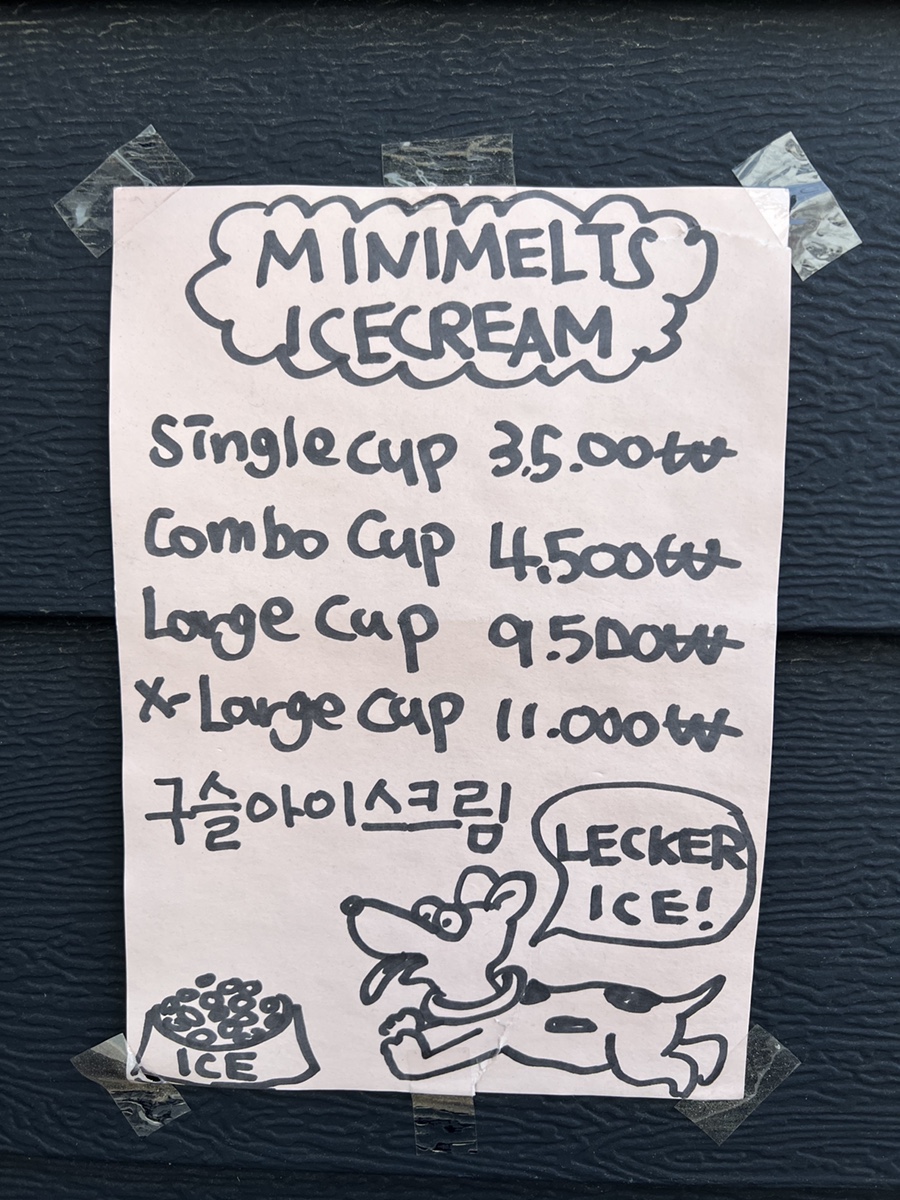 MINIMELTS
ICECREAM
Single cup 3,5.00₩
Combo Cup 4,500₩
Large Cup 9.500₩
X-Large cup 11.000₩
구슬아이스크림
LECKER
ICE!
ICE